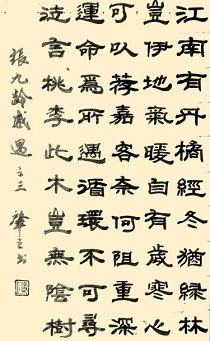 江南有丹橘經冬猶緑林
豈伊地氣暖自有歲寒心
可以荐嘉客奈何阻重深
運命爲所遇循環不可尋
言桃李此木豈無陰樹
張九齡感遇之三 肇书